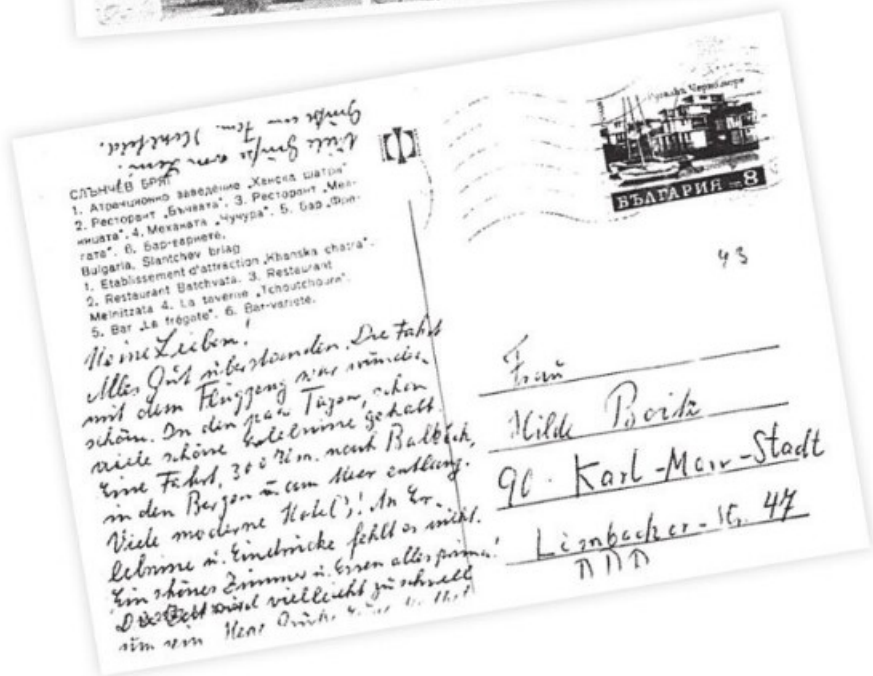 Viele Grüße von
Grüße von Fam.
СЛЪНЧЕВ БРЯГ
1. Атракционно заведение „Ханска шатра“
2. Ресторант „Бъчвата“. 3. Ресторант „Мел-
ницата“. 4. Механата „Чучура“. 5. Бар „Фри-
гата“. 6. Бар-вариете.
Bulgaria, Slantchev briag
1. Etablissement d'attraction „Khanska chatra“.
2. Restaurant Batchvata. 3. Restaurant
Melnitzata 4. La taverne „Tchoutchoura“.
5. Bar „La frégate“. 6. Bar-varieté.
Meine Lieben!
Alles Gut überstanden. Die Fahrt
mit dem Flugzeug war wunder
schön. In den paar Tagen, schon
viele schöne Erlebnisse gehabt.
Eine Fahrt, 300 Km. nach
in den Bergen u. am Meer entlang.
Viele moderne Hotels! An Er-
lebnisse u. Eindrücke fehlt es nicht.
Ein schönes Zimmer u. Essen alles prima!
Die Zeit wird vielleicht zu schnell
um sein
БЪЛГАРИЯ 8
43
Frau
Hilde
90 Karl-Marx-Stadt
Limbacher-Str. 47
DDR